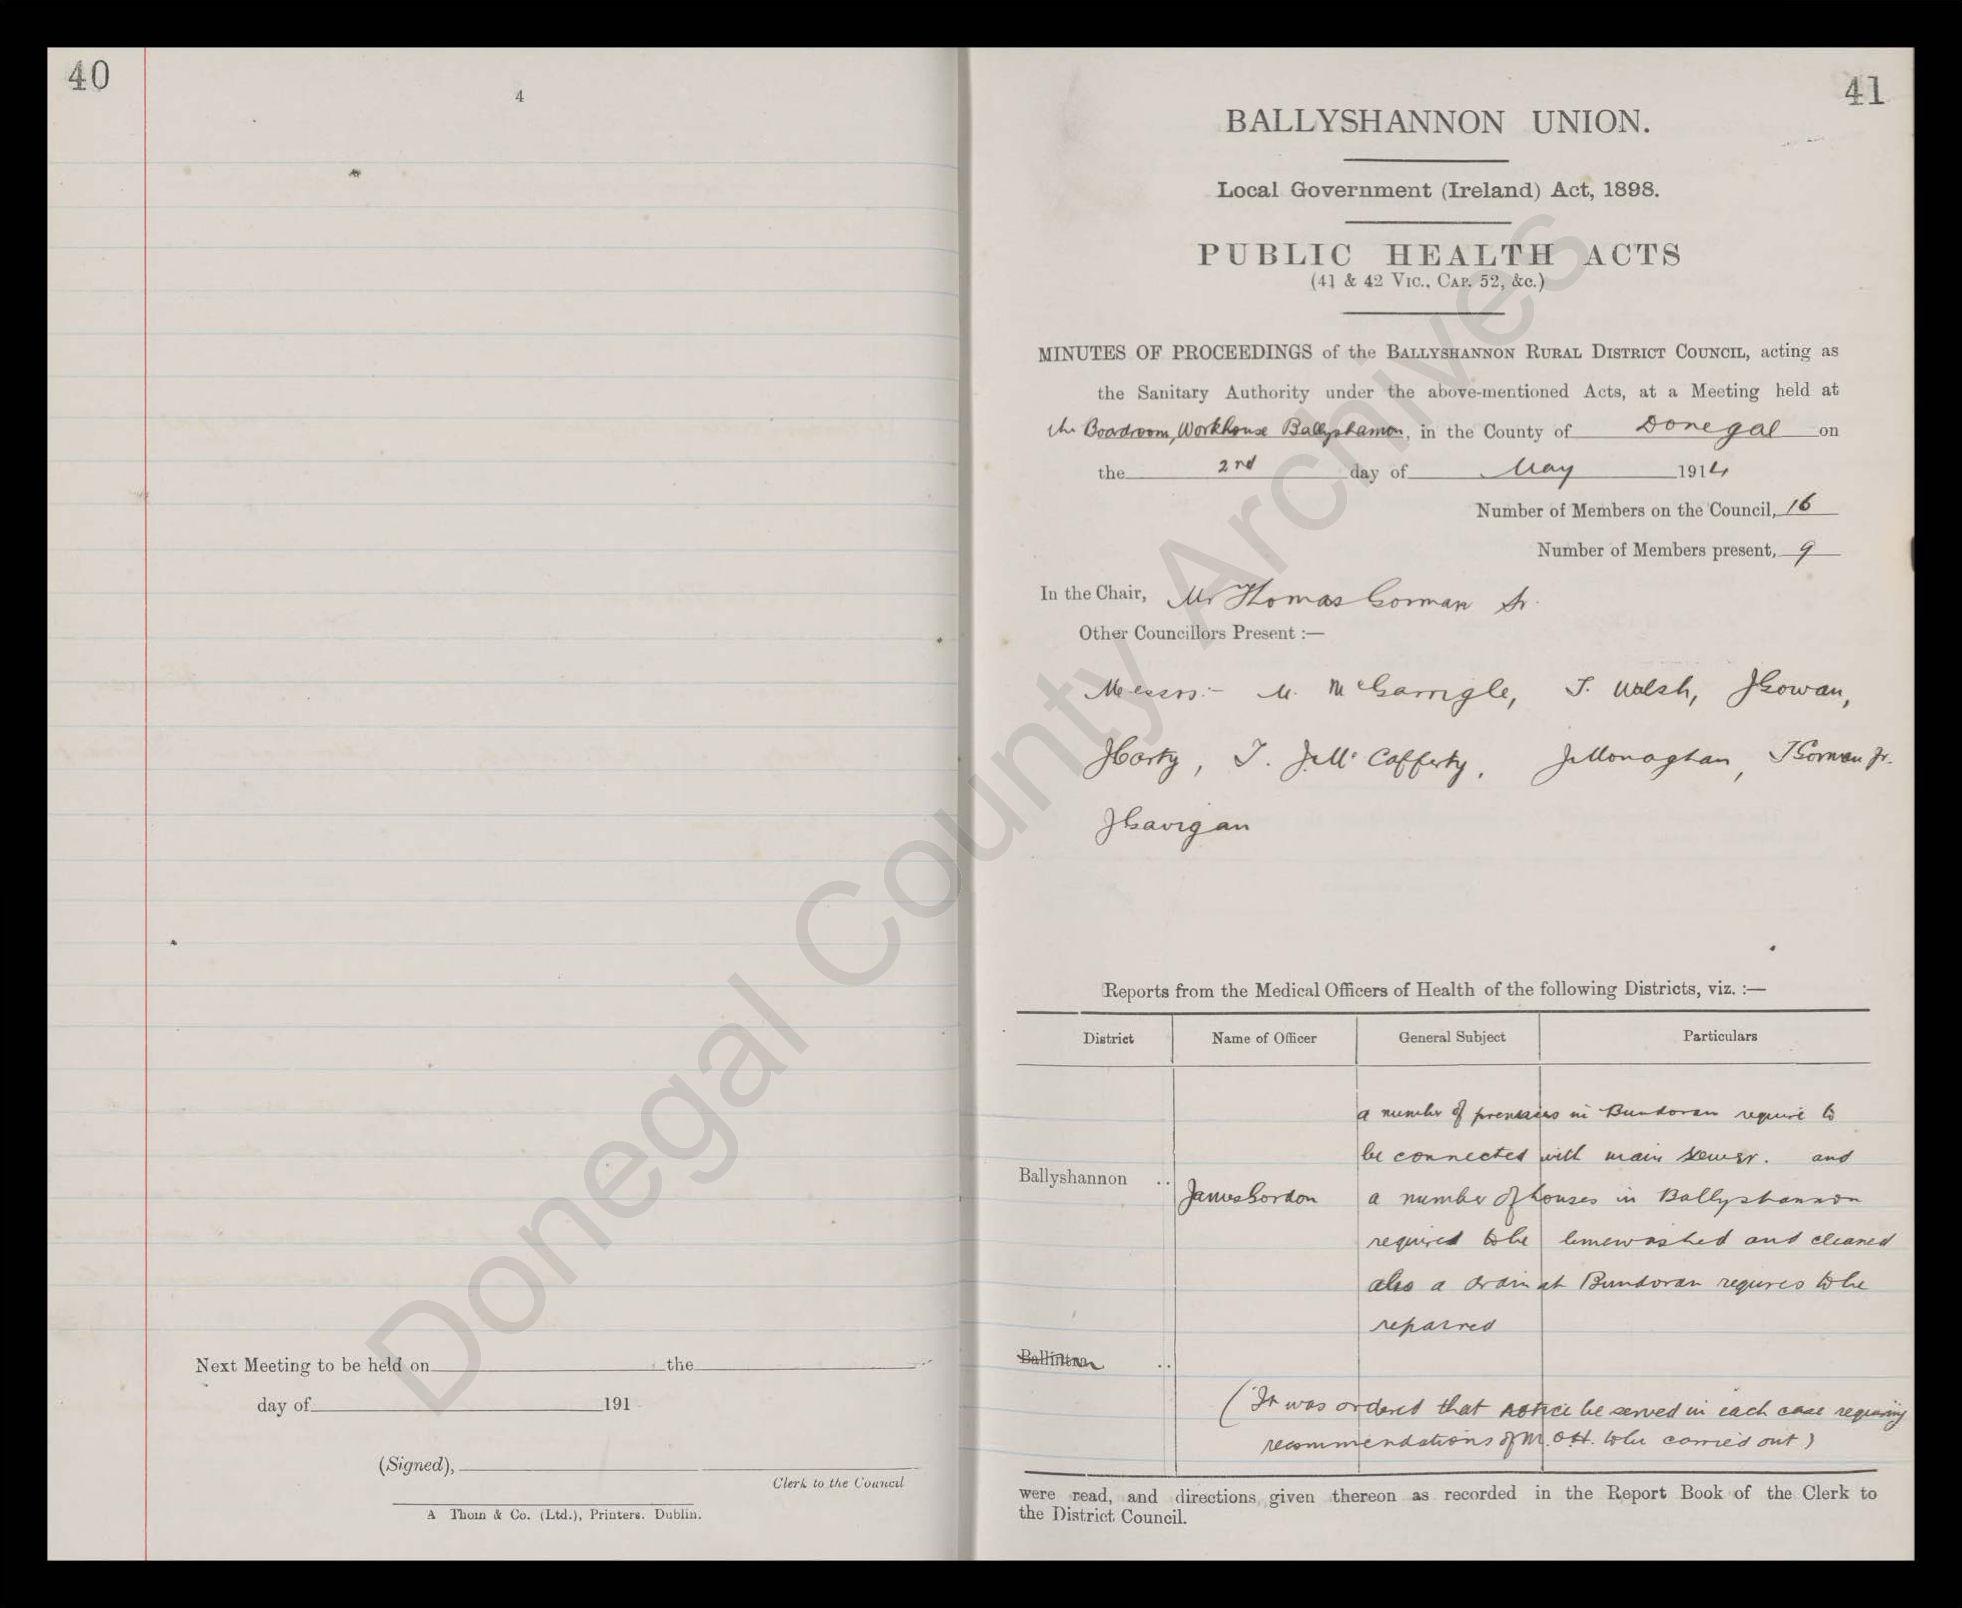 40
4
Next Meeting to be held on the
day of 191
(Signed),
Clerk to the Council
A Thom & Co. (Ltd.), Printers. Dublin.
41
BALLYSHANNON UNION.
Local Government (Ireland) Act, 1898.
PUBLIC HEALTH ACTS
(41 & 42 Vic., Cap. 52, &c.)
MINUTES OF PROCEEDINGS of the Ballyshannon Rural District Council, acting as
the Sanitary Authority under the above-mentioned Acts, at a Meeting held at
the Boardroom, Workhouse Ballyshannon, in the County of Donegal on
the 2nd day of May 1914
Number of Members on the Council, 16
Number of Members present, 9
In the Chair, Mr Thomas Gorman Sr.
Other Councillors Present :—
Messrs:- M. McGarrigle, T. Walsh, J Gowan,
J Carty, T. J. McCafferty, J Monaghan, T Gorman Jr.
J Gavigan
Reports from the Medical Officers of Health of the following Districts, viz. :—
District Name of Officer General Subject Particulars
a number of premises in Bundoran require to
be connected with main sewer. and
Ballyshannon .. James Gordon a number of houses in Ballyshannon
required to be limewashed and cleaned
also a drain at Bundoran requires to be
repaired
Ballintra ..
(It was ordered that notice be served in each case requiring
recommendations of M.O.H. to be carried out)
were read, and directions given thereon as recorded in the Report Book of the Clerk to
the District Council.
Donegal County Archives